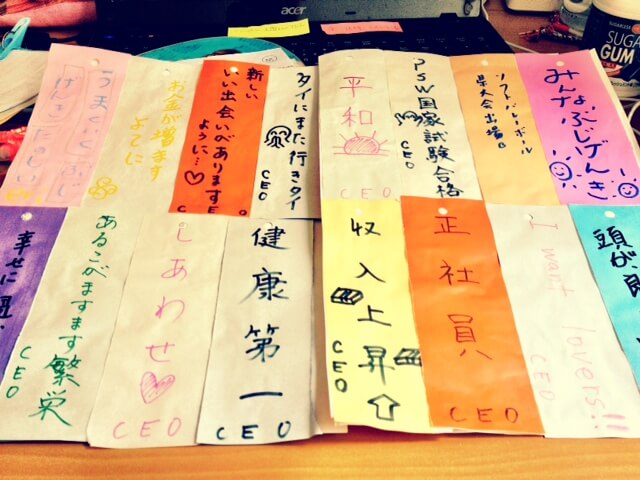 acer
SUGA
GUM
みんなぶじげんき
ソフトバレーボール
県大会出場
PSW国家試験合格
CEO
平和
CEO
タイにまた行きタイ
CEO
新しい
いい出会いがあります
ように…♡
CEO
お金が増ます
ように
うまくいく
頭が良
I want lovers!!
CEO
正社員
CEO
収入上昇
CEO
健康第一
CEO
しあわせ
CEO
あるこがますます繁栄
CEO
幸せに